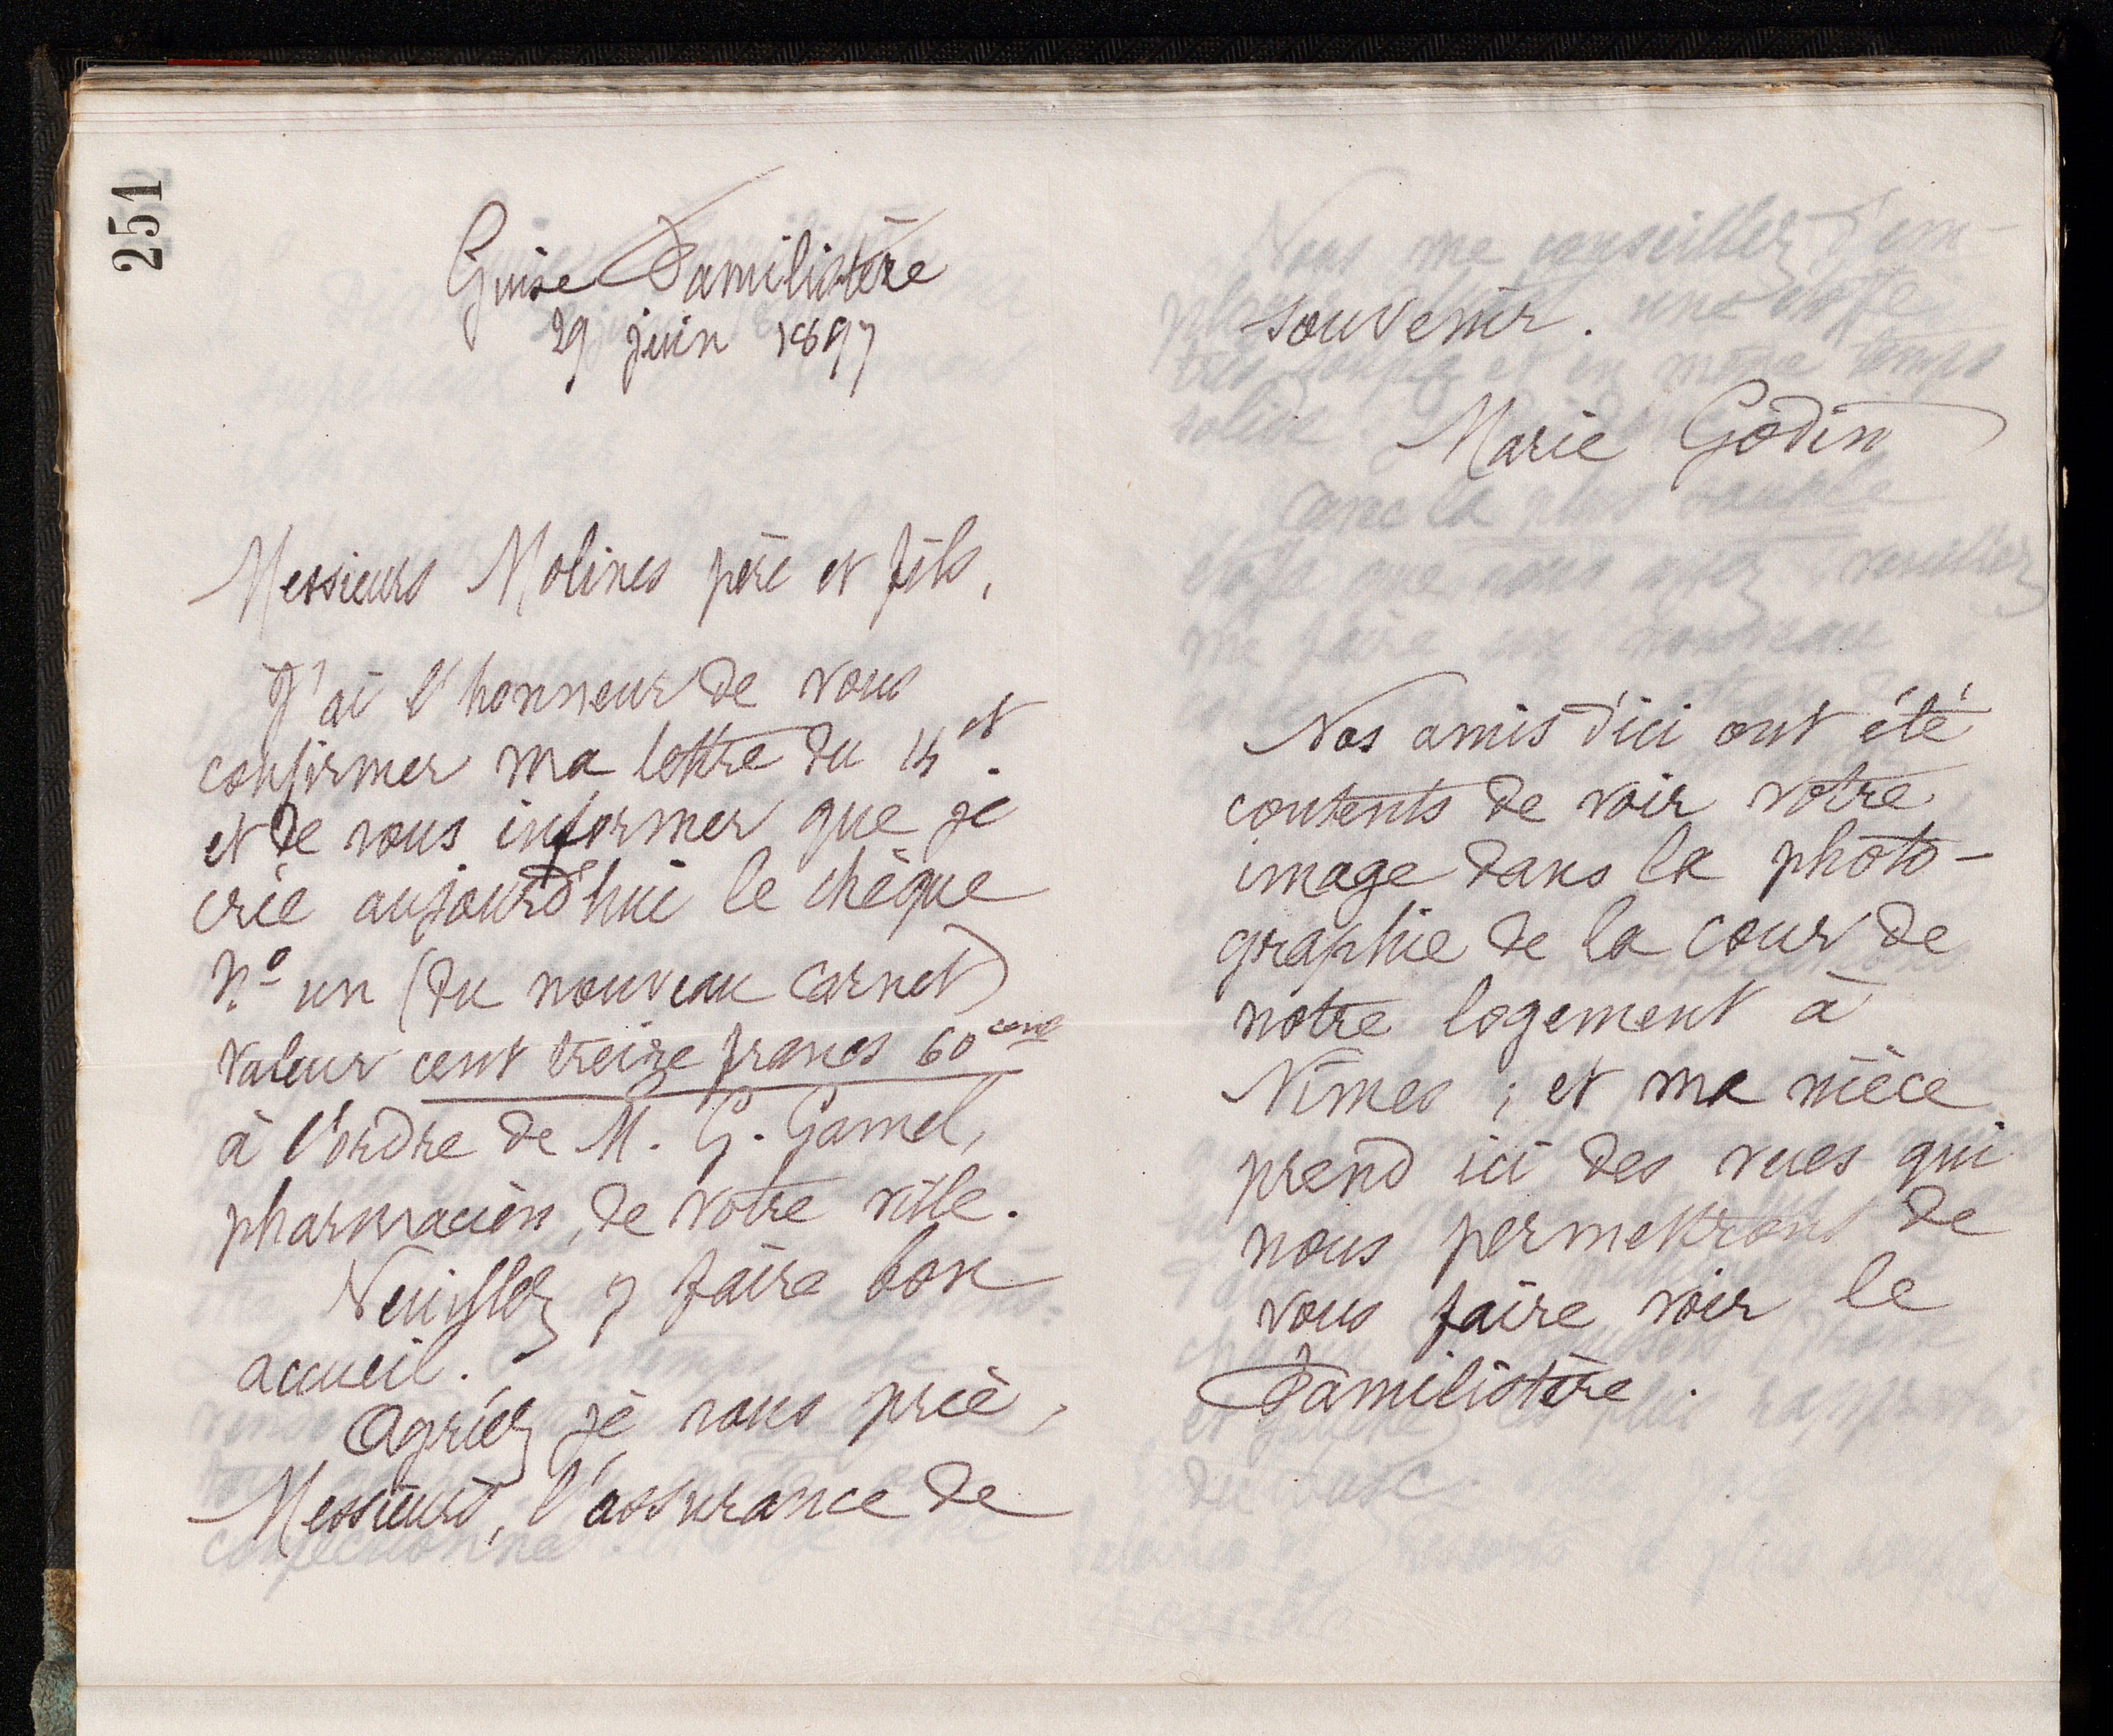 251
Guise Familistère
29 juin 1897
Messieurs Molines père et fils,
J'ai l'honneur de vous
confirmer ma lettre du 14 ct.
et de vous informer que je
crée aujourd'hui le chèque
N.º un (du nouveau carnet)
valeur cent treize francs 60 cent
à l'ordre de M. G. Gamel,
pharmacien, de votre ville.
Veuillez y faire bon
accueil.
Agréez je vous prie,
Messieurs, l'assurance de
souvenir.
Marie Godin
Nos amis d'ici ont été
contents de voir votre
image dans la photo-
graphie de la cour de
notre logement à
Nîmes ; et ma nièce
prend ici des vues qui
nous permettront de
vous faire voir le
Familistère.